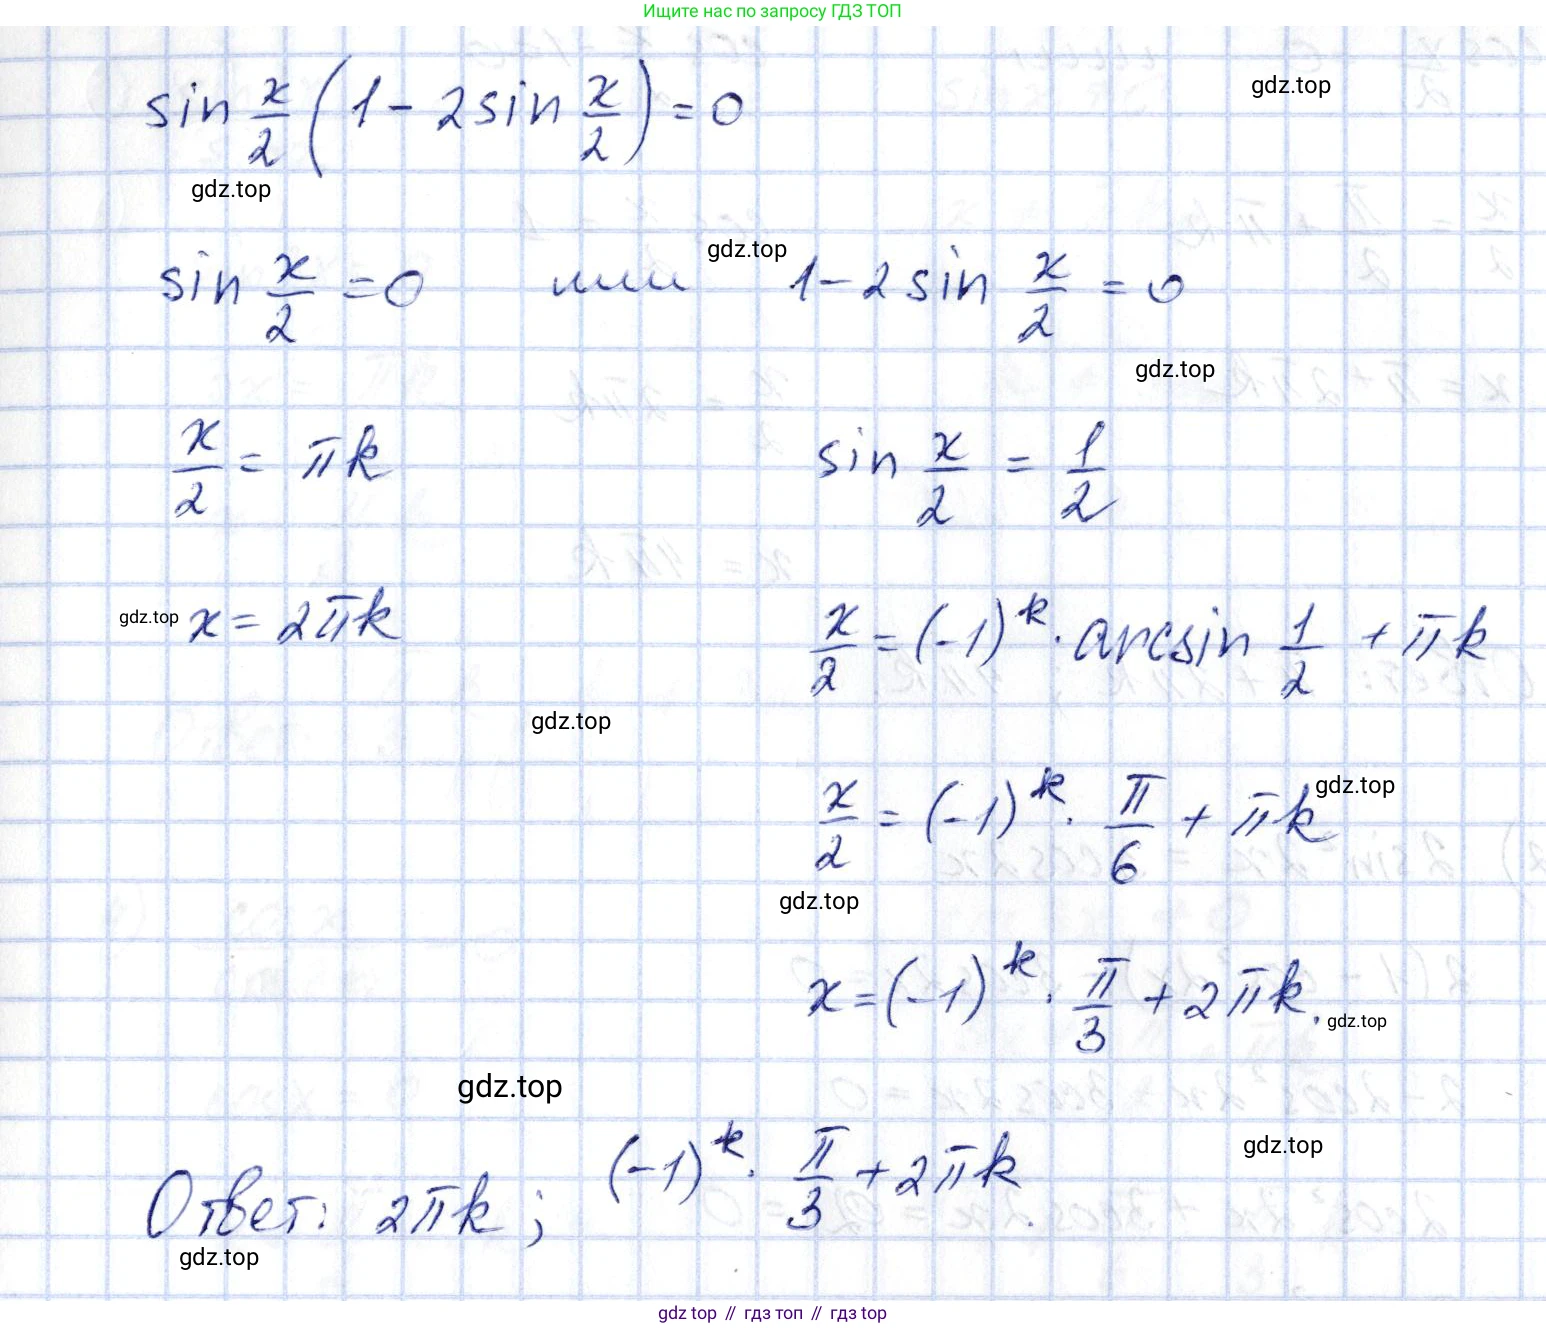 Ищите нас по запросу ГДЗ ТОП
gdz.top
sin x/2 (1 - 2 sin x/2) = 0
gdz.top
gdz.top
sin x/2 = 0 или 1 - 2 sin x/2 = 0
gdz.top
x/2 = πk sin x/2 = 1/2
gdz.top x = 2πk x/2 = (-1)^k · arcsin 1/2 + πk
gdz.top
gdz.top
x/2 = (-1)^k · π/6 + πk
gdz.top
x = (-1)^k · π/3 + 2πk.
gdz.top
gdz.top
gdz.top
Ответ: 2πk; (-1)^k · π/3 + 2πk.
gdz.top
gdz top // гдз топ // gdz top